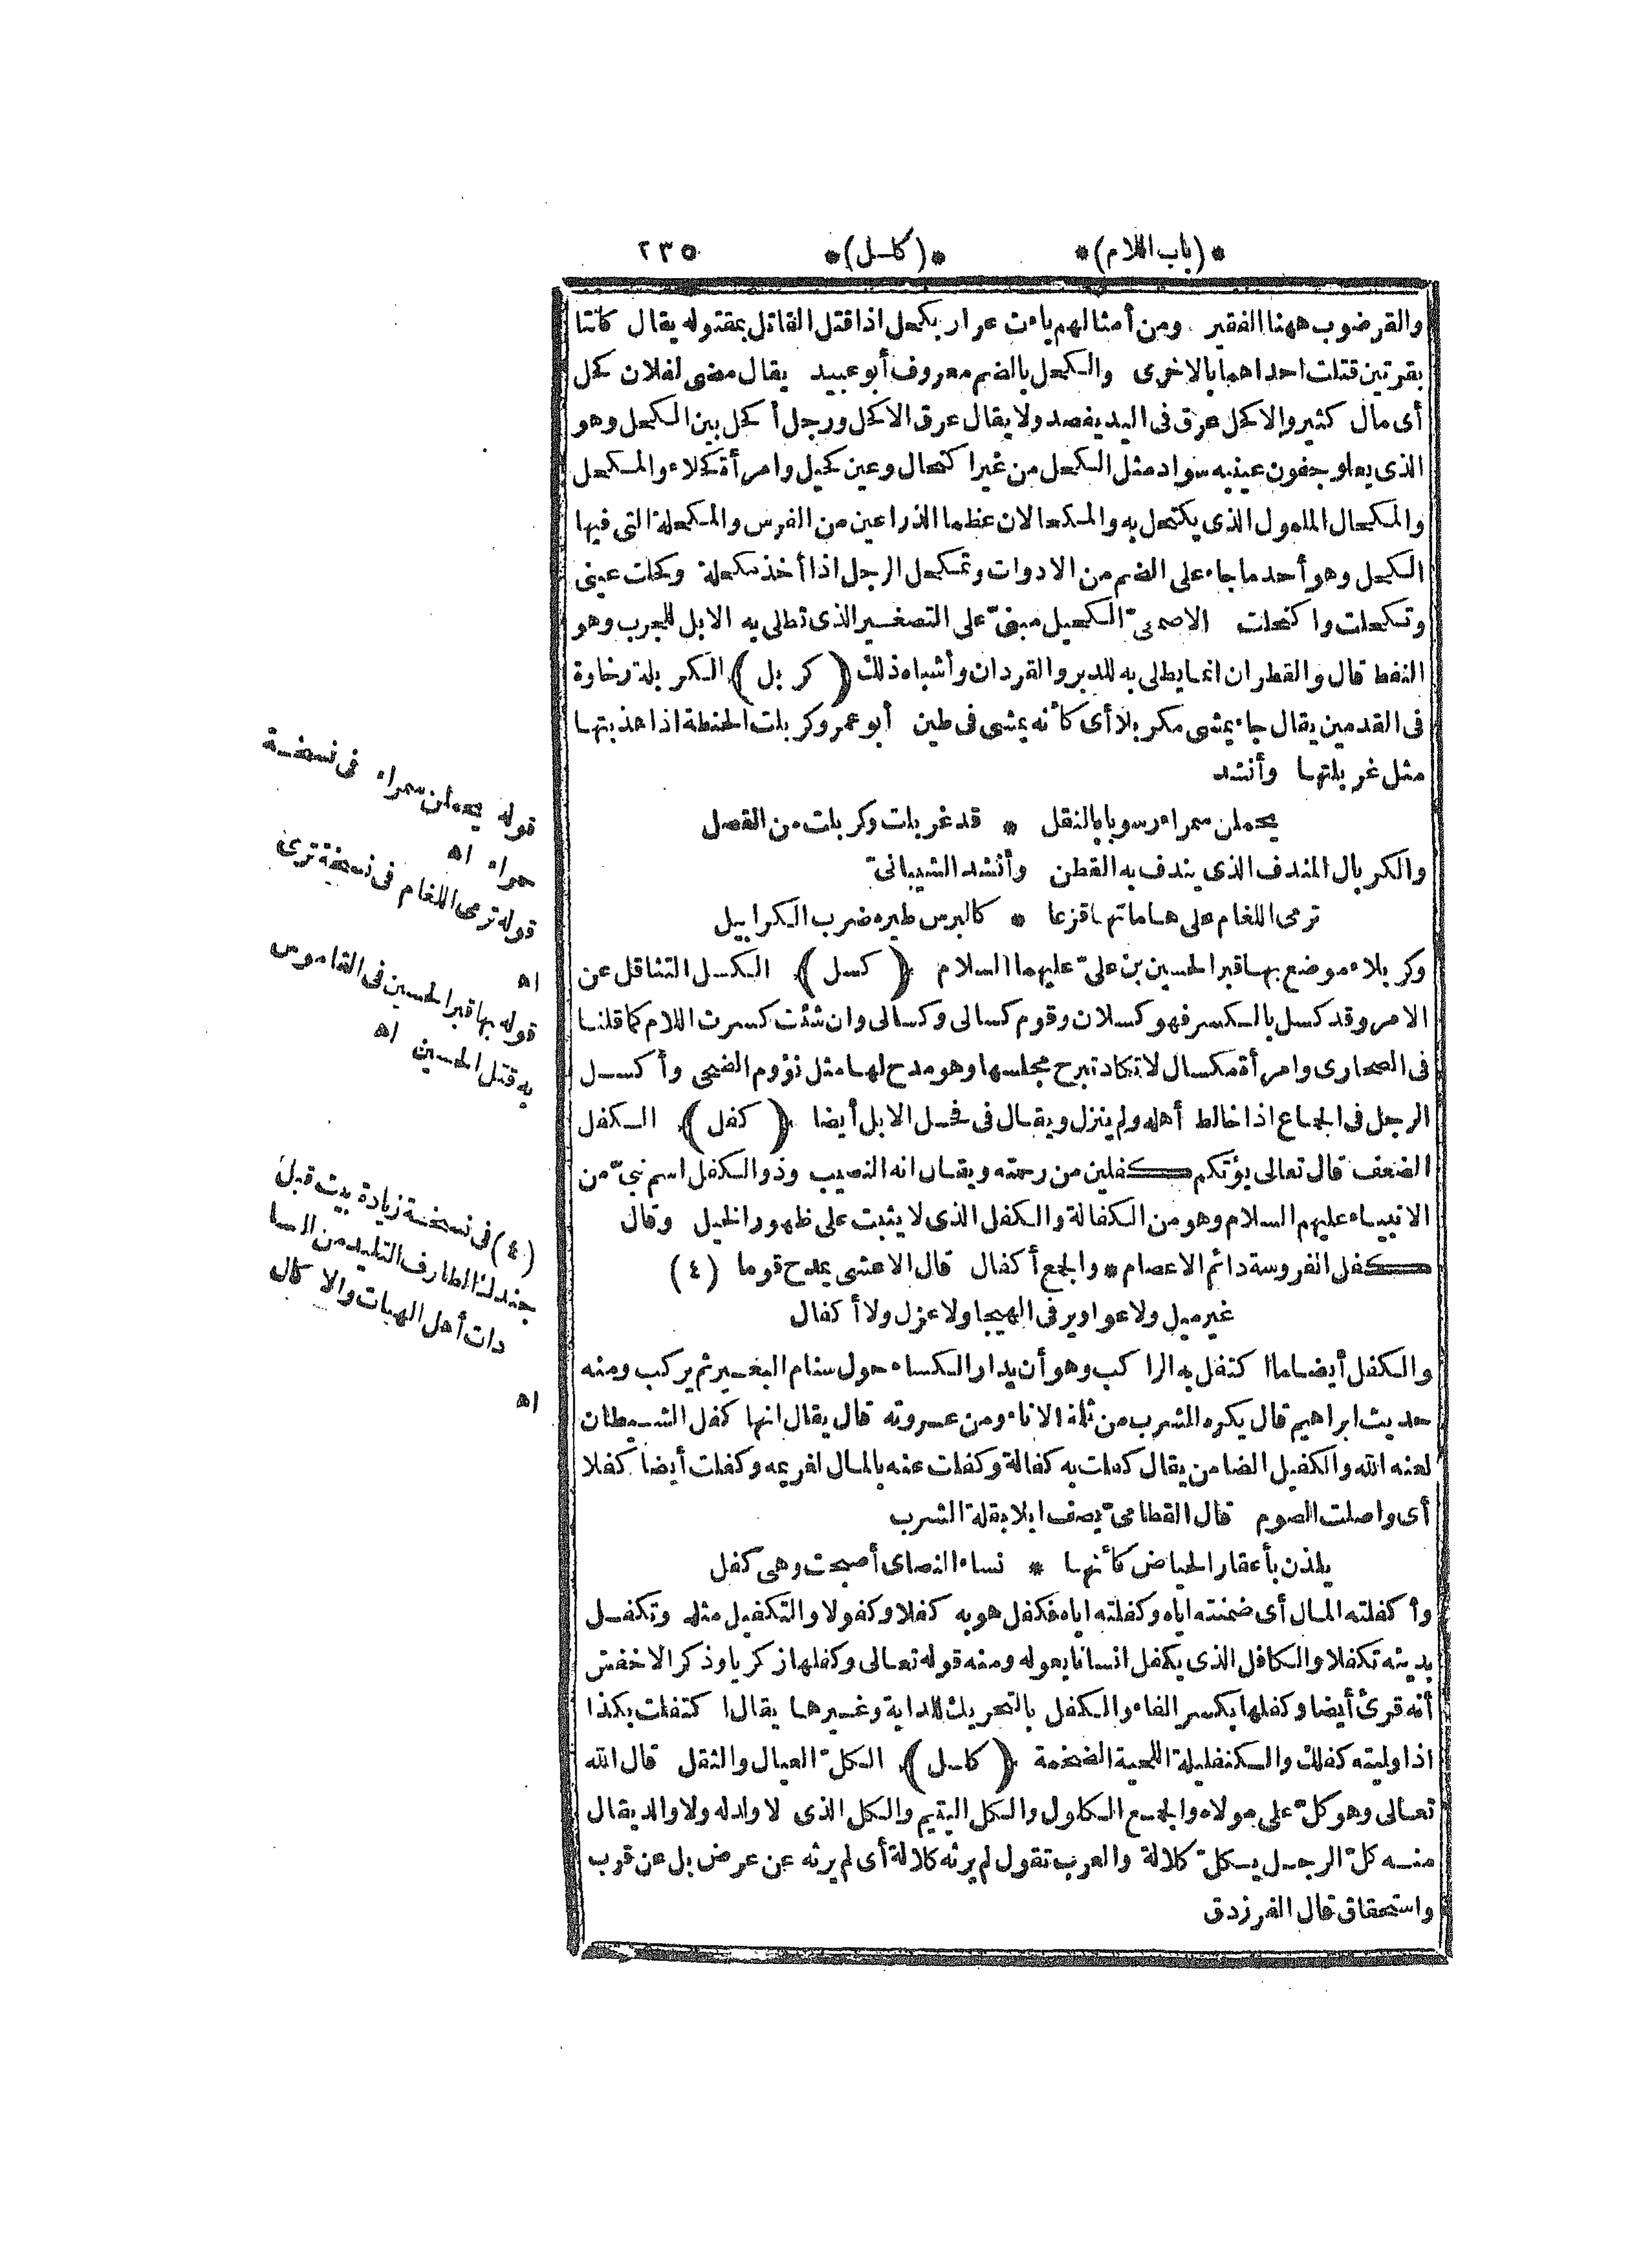 *(باب اللام)* *(كلل)* ٢٣٥
والقرضوب ههنا الفقير ومن أمثالهم باءت عرار بكحل اذا قتل القاتل بمقتوله يقال كانتا
بقرتين قتلت احداهما بالاخرى والكحل بالضم معروف أبو عبيد يقال مضى لفلان كحل
أى مال كثير والاكحل عرق فى اليد يفصد ولا يقال عرق الاكحل ورجل أكحل بين الكحل وهو
الذى يعلو جفون عينيه سواد مثل الكحل من غير اكتحال وعين كحيل وامرأة كحلاء والمكحل
والمكحال الملمول الذى يكتحل به والمكحالان عظما الذراعين من الفرس والمكحلة التى فيها
الكحل وهو أحد ما جاء على الضم من الادوات وتمكحل الرجل اذا أخذ مكحلة وكحلت عينى
وتكحلت واكتحلت الاصمعىّ الكحيل مبنىّ على التصغير الذى تطلى به الابل للجرب وهو
النفط قال والقطران انما يطلى به للدبر والقردان وأشباه ذلك (كربل) الكربلة رخاوة
فى القدمين يقال جاء يمشى مكربلا أى كأنه يمشى فى طين أبو عمرو كربلت الحنطة اذا هذبتها
مثل غربلتها وأنشد
يحملن سمراء رسوبا بالنقل * قد غربلت وكربلت من القصل
والكربال المندف الذى يندف به القطن وأنشد الشيبانىّ
ترمى اللغام على هاماتها قزعا * كالبرس طيره ضرب الكرابيل
وكربلاء موضع بها قبر الحسين بن علىّ عليهما السلام (كسل) الكسل التثاقل عن
الامر وقد كسل بالكسر فهو كسلان وقوم كسالى وكسالى وان شئت كسرت اللام كما قلنا
فى الصحارى وامرأة مكسال لا تكاد تبرح مجلسها وهو مدح لها مثل نؤوم الضحى وأكسل
الرجل فى الجماع اذا خالط أهله ولم ينزل ويقال فى فحل الابل أيضا (كفل) الكفل
الضعف قال تعالى يؤتكم كفلين من رحمته ويقال انه النصيب وذو الكفل اسم نبىّ من
الانبياء عليهم السلام وهو من الكفالة والكفل الذى لا يثبت على ظهور الخيل وقال
كفل الفروسة دائم الاعصام * والجمع أكفال قال الاعشى يمدح قوما (٤)
غير ميل ولا عواوير فى الهيجا ولا عزل ولا أكفال
والكفل أيضا ما اكتفل به الراكب وهو أن يدار الكساء حول سنام البعير ثم يركب ومنه
حديث ابراهيم قال يكره الشرب من ثلمة الاناء ومن عروته قال يقال انها كفل الشيطان
لعنه الله والكفيل الضامن يقال كفلت به كفالة وكفلت عنه بالمال لغريمه وكفلت أيضا كفلا
أى واصلت الصوم قال القطامىّ يصف ابلا بقلة الشرب
يلذن بأعقار الحياض كأنها * نساء النصاى أصبحت وهى كفل
وأكفلته المال أى ضمنته اياه وكفلته اياه فكفل هو به كفلا وكفولا والتكفيل مثله وتكفل
بدينه تكفلا والكافل الذى يكفل انسانا يعوله ومنه قوله تعالى وكفلها زكريا وذكر الاخفش
أنه قرئ أيضا وكفلها بكسر الفاء والكفل بالتحريك للدابة وغيرها يقال اكتفلت بكذا
اذا وليته كفلك والكنفليلة اللحية الضخمة (كلل) الكلّ العيال والثقل قال الله
تعالى وهو كلّ على مولاه والجمع الكلول والكل اليتيم والكل الذى لا ولد له ولا والد يقال
منه كلّ الرجل يكلّ كلالة والعرب تقول لم يرثه كلالة أى لم يرثه عن عرض بل عن قرب
واستحقاق قال الفرزدق
قوله يحملن سمراء فى نسخة
حمراء اه
قوله ترمى اللغام فى نسخة ترى
اه
قوله بها قبر الحسين فى القاموس
به قتل الحسين اه
(٤) فى نسخة زيادة بيت قبل
جندك الطارف التليد من السا
دات أهل الهبات والاكال
اه